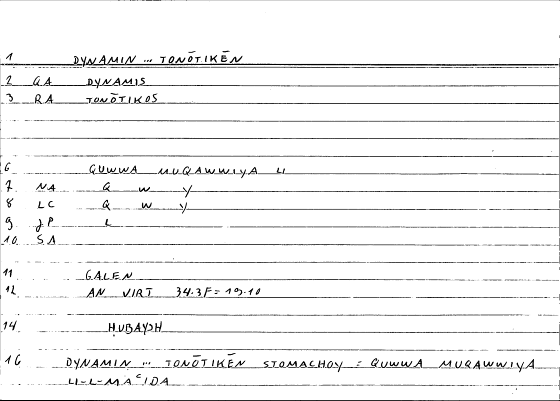 1 DYNAMIN ... TONŌTIKĒN
2 GA DYNAMIS
3 RA TONŌTIKOS
6 QUWWA MUQAWWIYA LI
7 NA Q W Y
8 LC Q W Y
9 JP L
10 SA
11 GALEN
12 AN VIRT 34.3F = 109.10
14 HUBAYSH
16 DYNAMIN ... TONŌTIKĒN STOMACHOY = QUWWA MUQAWWIYA
LI-L-MAʿIDA